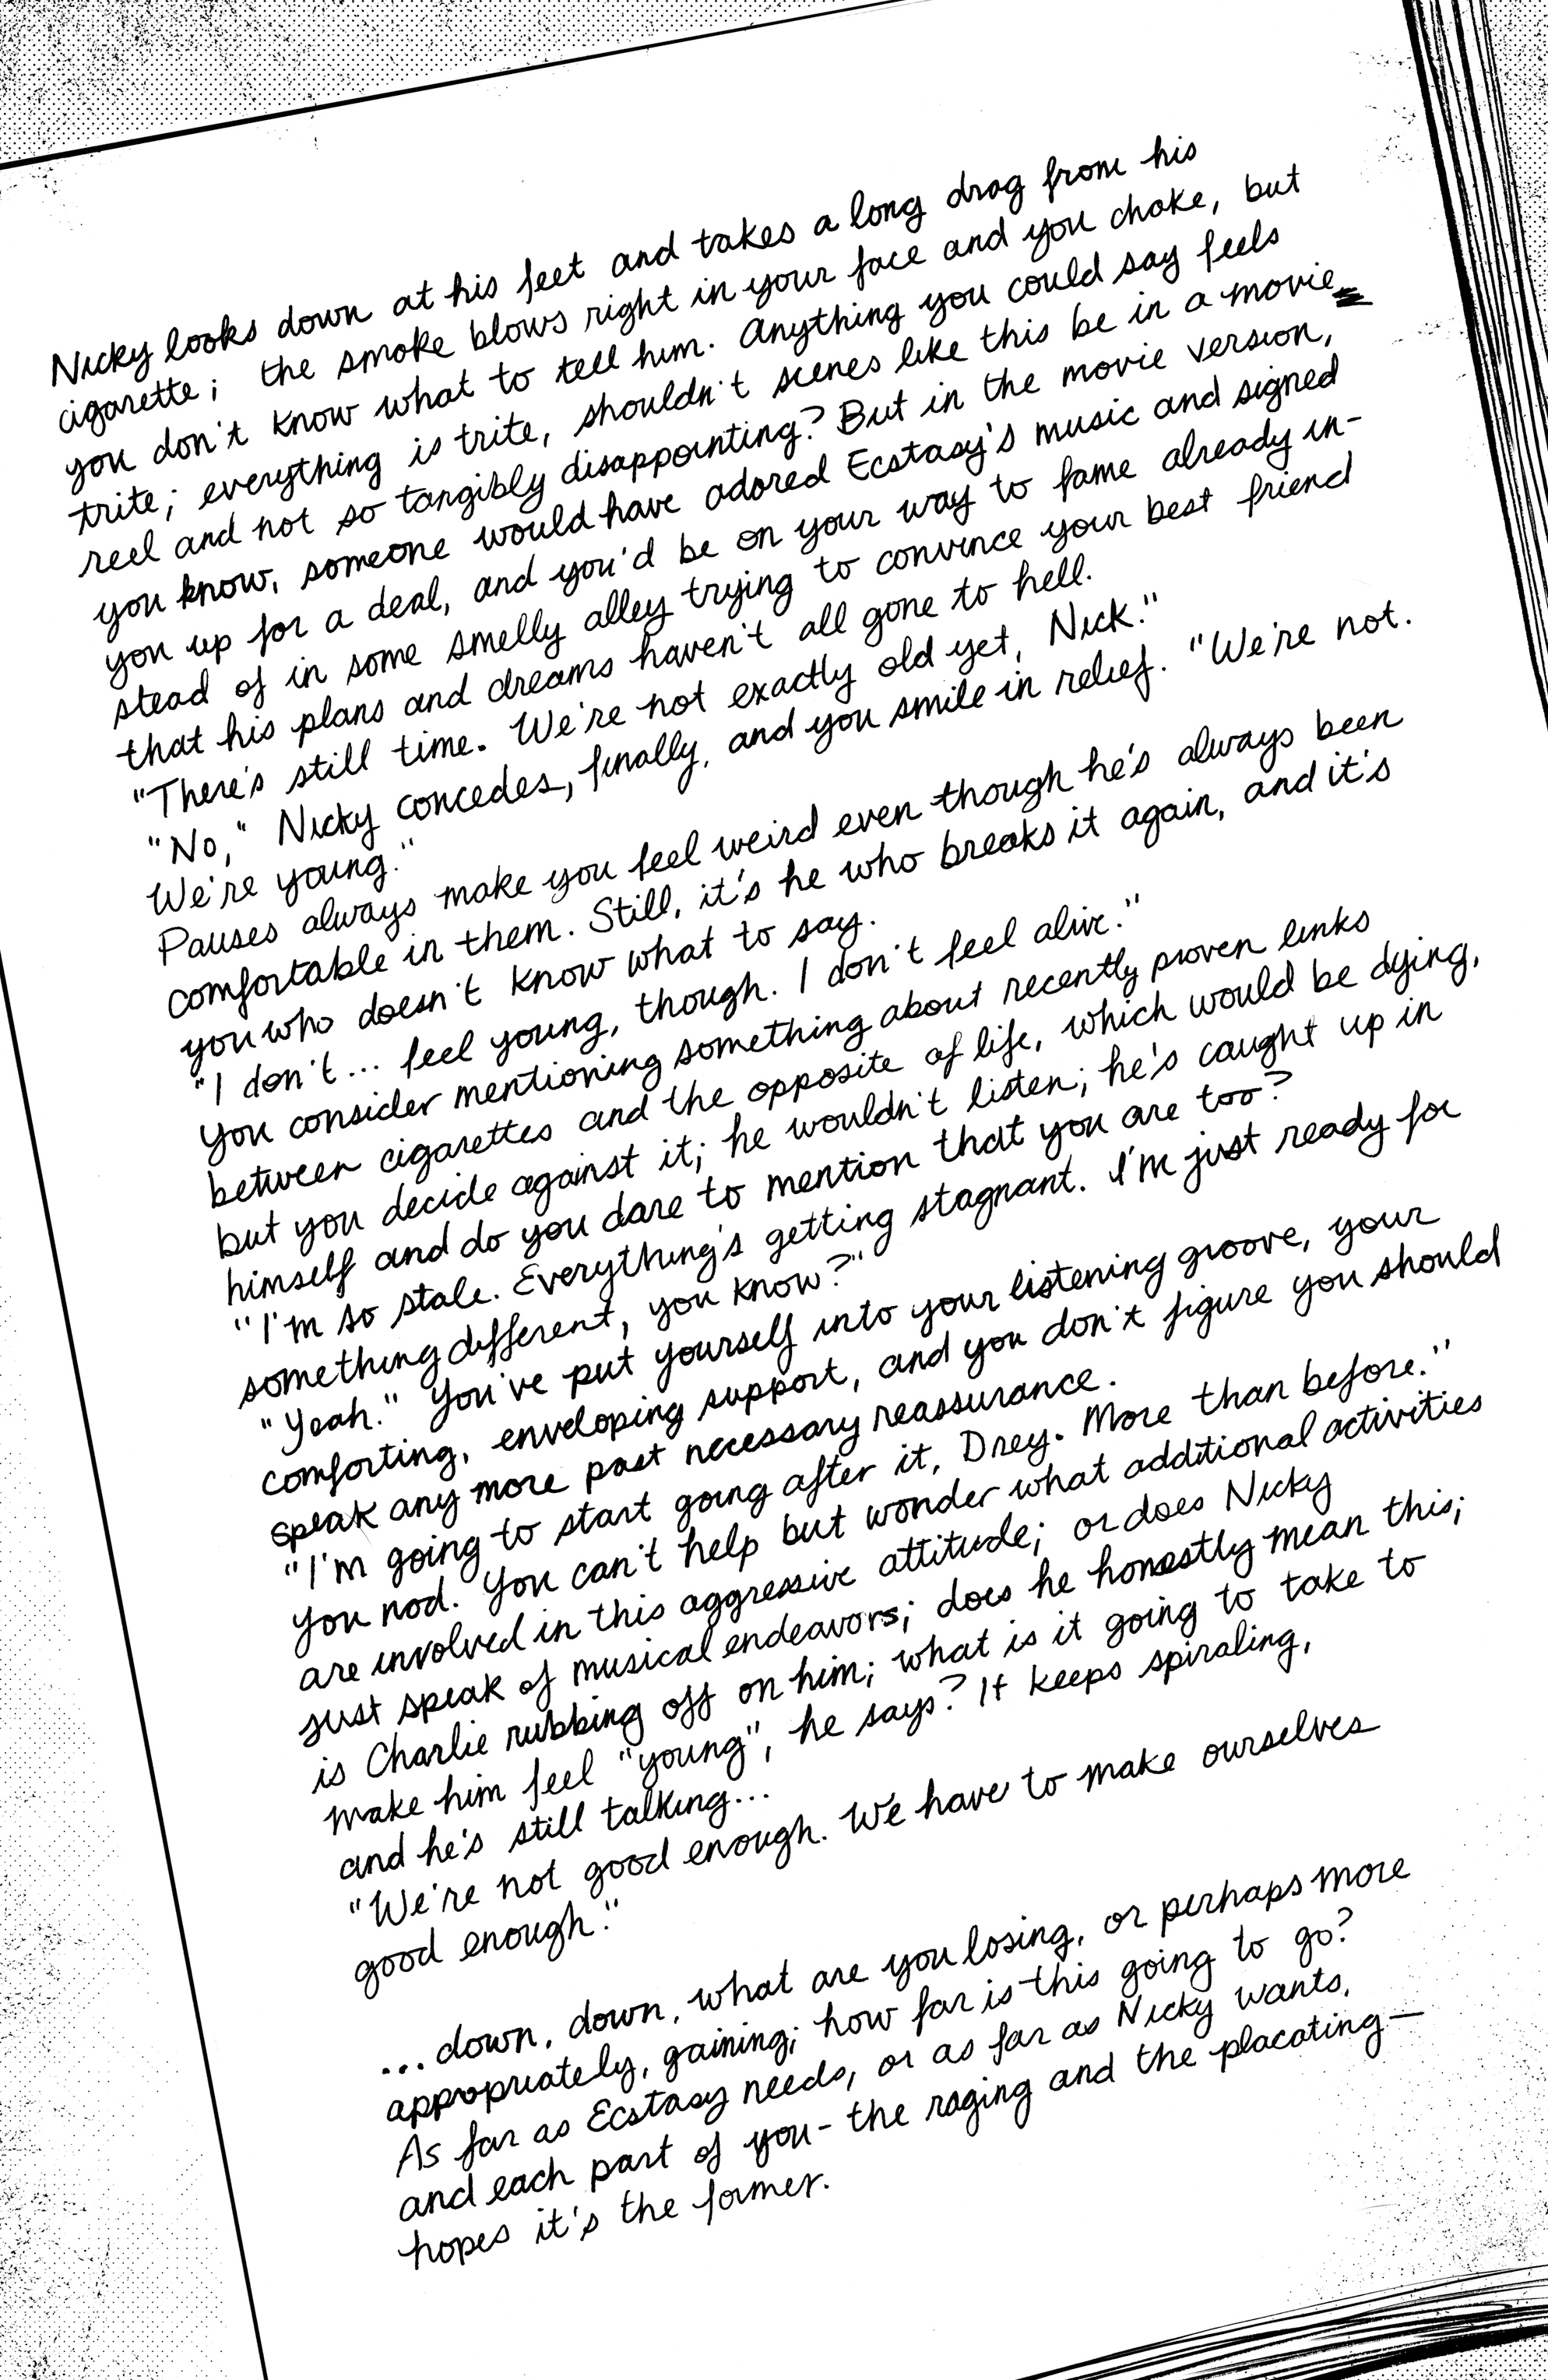 Nicky looks down at his feet and takes a long drag from his
cigarette; the smoke blows right in your face and you choke, but
you don't know what to tell him. Anything you could say feels
trite; everything is trite, shouldn't scenes like this be in a movie
reel and not so tangibly disappointing? But in the movie version,
you know, someone would have adored Ecstasy's music and signed
you up for a deal, and you'd be on your way to fame already in-
stead of in some smelly alley trying to convince your best friend
that his plans and dreams haven't all gone to hell.
"There's still time. We're not exactly old yet, Nick."
"No," Nicky concedes, finally, and you smile in relief. "We're not.
We're young."
Pauses always make you feel weird even though he's always been
comfortable in them. Still, it's he who breaks it again, and it's
you who doesn't know what to say.
"I don't... feel young, though. I don't feel alive."
You consider mentioning something about recently proven links
between cigarettes and the opposite of life, which would be dying,
but you decide against it; he wouldn't listen; he's caught up in
himself and do you dare to mention that you are too?
"I'm so stale. Everything's getting stagnant. I'm just ready for
something different, you know?"
"Yeah." You've put yourself into your listening groove, your
comforting, enveloping support, and you don't figure you should
speak any more past necessary reassurance.
"I'm going to start going after it, Drey. More than before."
You nod. You can't help but wonder what additional activities
are involved in this aggressive attitude; or does Nicky
just speak of musical endeavors; does he honestly mean this;
is Charlie rubbing off on him; what is it going to take to
make him feel "young", he says? It keeps spiraling,
and he's still talking...
"We're not good enough. We have to make ourselves
good enough."
...down, down, what are you losing, or perhaps more
appropriately, gaining; how far is this going to go?
As far as Ecstasy needs, or as far as Nicky wants,
and each part of you- the raging and the placating—
hopes it's the former.